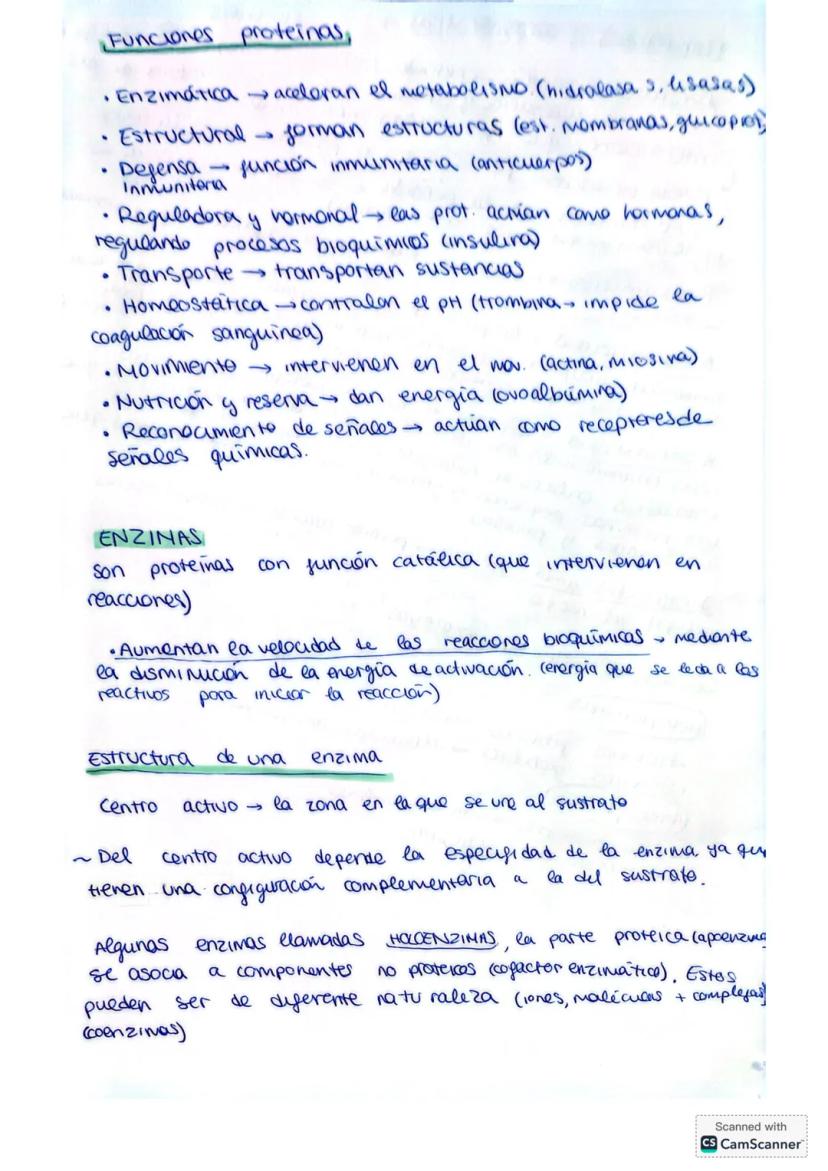 Funciones proteínas.
• Enzimática → aceleran el metabolismo. (hidrolasa s, liasas)
• Estructural → forman estructuras (est. membranas, glucoprot)
• Defensa → función inmunitaria (anticuerpos)
Inmunitaria
• Reguladora y hormonal → las prot. actúan como hormonas,
regulando procesos bioquímicos (insulina)
• Transporte → transportan sustancias
• Homeostática → controlan el pH (trombina → impide la
coagulación sanguínea)
• Movimiento → intervienen en el mov. (actina, miosina)
• Nutrición y reserva → dan energía (ovoalbúmina)
• Reconocimiento de señales → actúan como receptores de
señales químicas.
ENZIMAS
Son proteínas con función catálica (que intervienen en
reacciones)
• Aumentan la velocidad de las reacciones bioquímicas → mediante
la disminución de la energía de activación. (energía que se le da a los
reactivos para iniciar la reacción)
Estructura de una enzima
Centro activo → la zona en la que se une al sustrato
~ Del centro activo depende la especifidad de la enzima ya que
tienen una configuración complementaria a la del sustrato.
Algunas enzimas llamadas HOLOENZIMAS, la parte proteica (apoenzima
se asocia a componentes no proteicos (cofactor enzimático). Estos
pueden ser de diferente natu raleza (iones, moléculas + complejas)
(coenzimas)
Scanned with
CS CamScanner